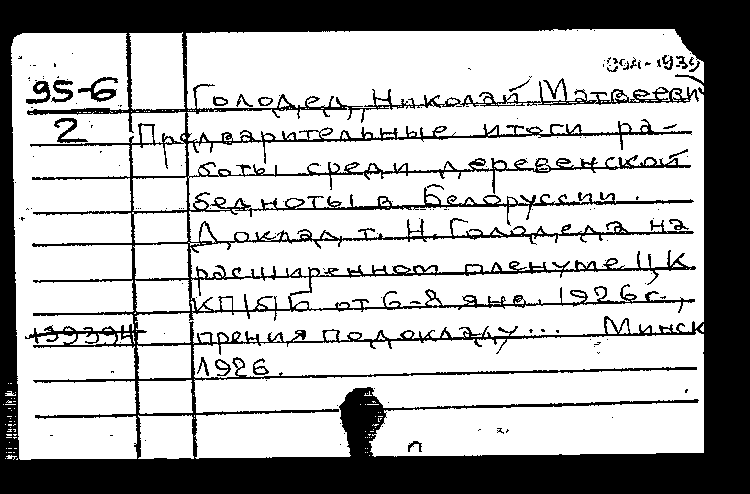 1894-1939
95-6
2
Голодед, Николай Матвеевич
Предварительные итоги ра-
боты среди деревенской
бедноты в Белоруссии.
Доклад т. Н. Голодеда на
расширенном пленуме ЦК
КП/б/Б от 6-8 янв. 1926 г.,
139394
прения по докладу... Минск
1926.
п